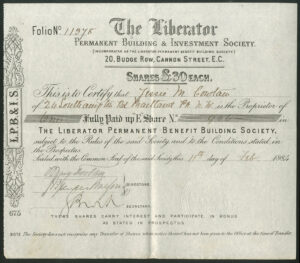 Folio No 11275
The Liberator
PERMANENT BUILDING & INVESTMENT SOCIETY.
(INCORPORATED AS THE LIBERATOR PERMANENT BENEFIT BUILDING SOCIETY)
20, BUDGE ROW, CANNON STREET, E.C.
SHARES £30 EACH.
This is to Certify that Jessie M.
of 24 Southampton Rd Maitland Pk N.W. is the Proprietor of
Fully Paid up E Share No
THE LIBERATOR PERMANENT BENEFIT BUILDING SOCIETY,
subject to the Rules of the said Society and to the Conditions stated in
the Prospectus.
Sealed with the Common Seal of the said Society this 11th day of Feb 188
DIRECTORS.
SECRETARY.
THESE SHARES CARRY INTEREST AND PARTICIPATE IN BONUS
AS STATED IN PROSPECTUS.
NOTE. The Society does not recognise any Transfer of Shares when notice thereof has not been given to the Office at the time of Transfer.
L.P.B & I.S.
675